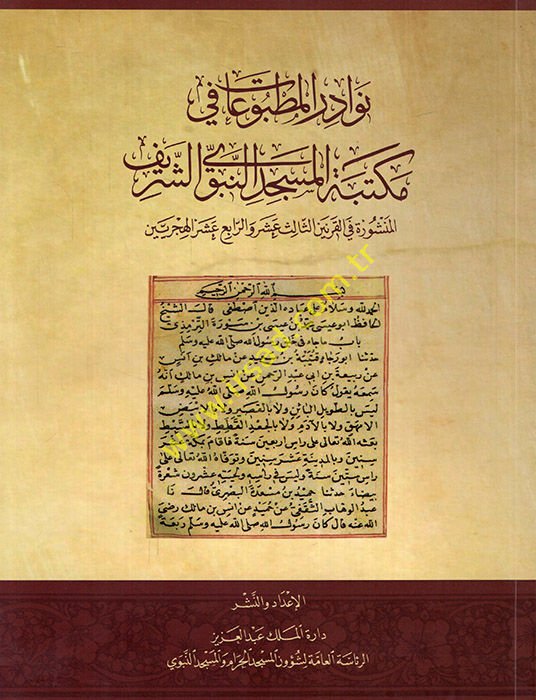 نوادر المطبوعات في
مكتبة المسجد النبوي الشريف
المنشورة في القرنين الثالث عشر والرابع عشر الهجريين
بسم الله الرحمن الرحيم
الحمد لله وسلام على عباده الذين اصطفى قال الشيخ
الحافظ ابو عيسى محمد بن عيسى بن سورة الترمذي
باب ما جاء في خلق رسول الله صلى الله عليه وسلم
حدثنا ابو رجاء قتيبة بن سعيد عن مالك بن انس
عن ربيعة بن ابي عبد الرحمن عن انس بن مالك انه
سمعه يقول كان رسول الله صلى الله عليه وسلم
ليس بالطويل البائن ولا بالقصير ولا بالابيض
الامهق ولا بالادم ولا بالجعد القطط ولا بالسبط
بعثه الله تعالى على راس اربعين سنة فاقام بمكة عشر
سنين وبالمدينة عشر سنين وتوفاه الله تعالى على
راس ستين سنة وليس في راسه ولحيته عشرون شعرة
بيضاء حدثنا حميد بن مسعدة البصري قال نا
عبد الوهاب الثقفي عن حميد عن انس بن مالك رضي
الله عنه قال كان رسول الله صلى الله عليه وسلم ربعة
www.irsad.com.tr
الإعداد والنشر
دارة الملك عبد العزيز
الرئاسة العامة لشؤون المسجد الحرام والمسجد النبوي